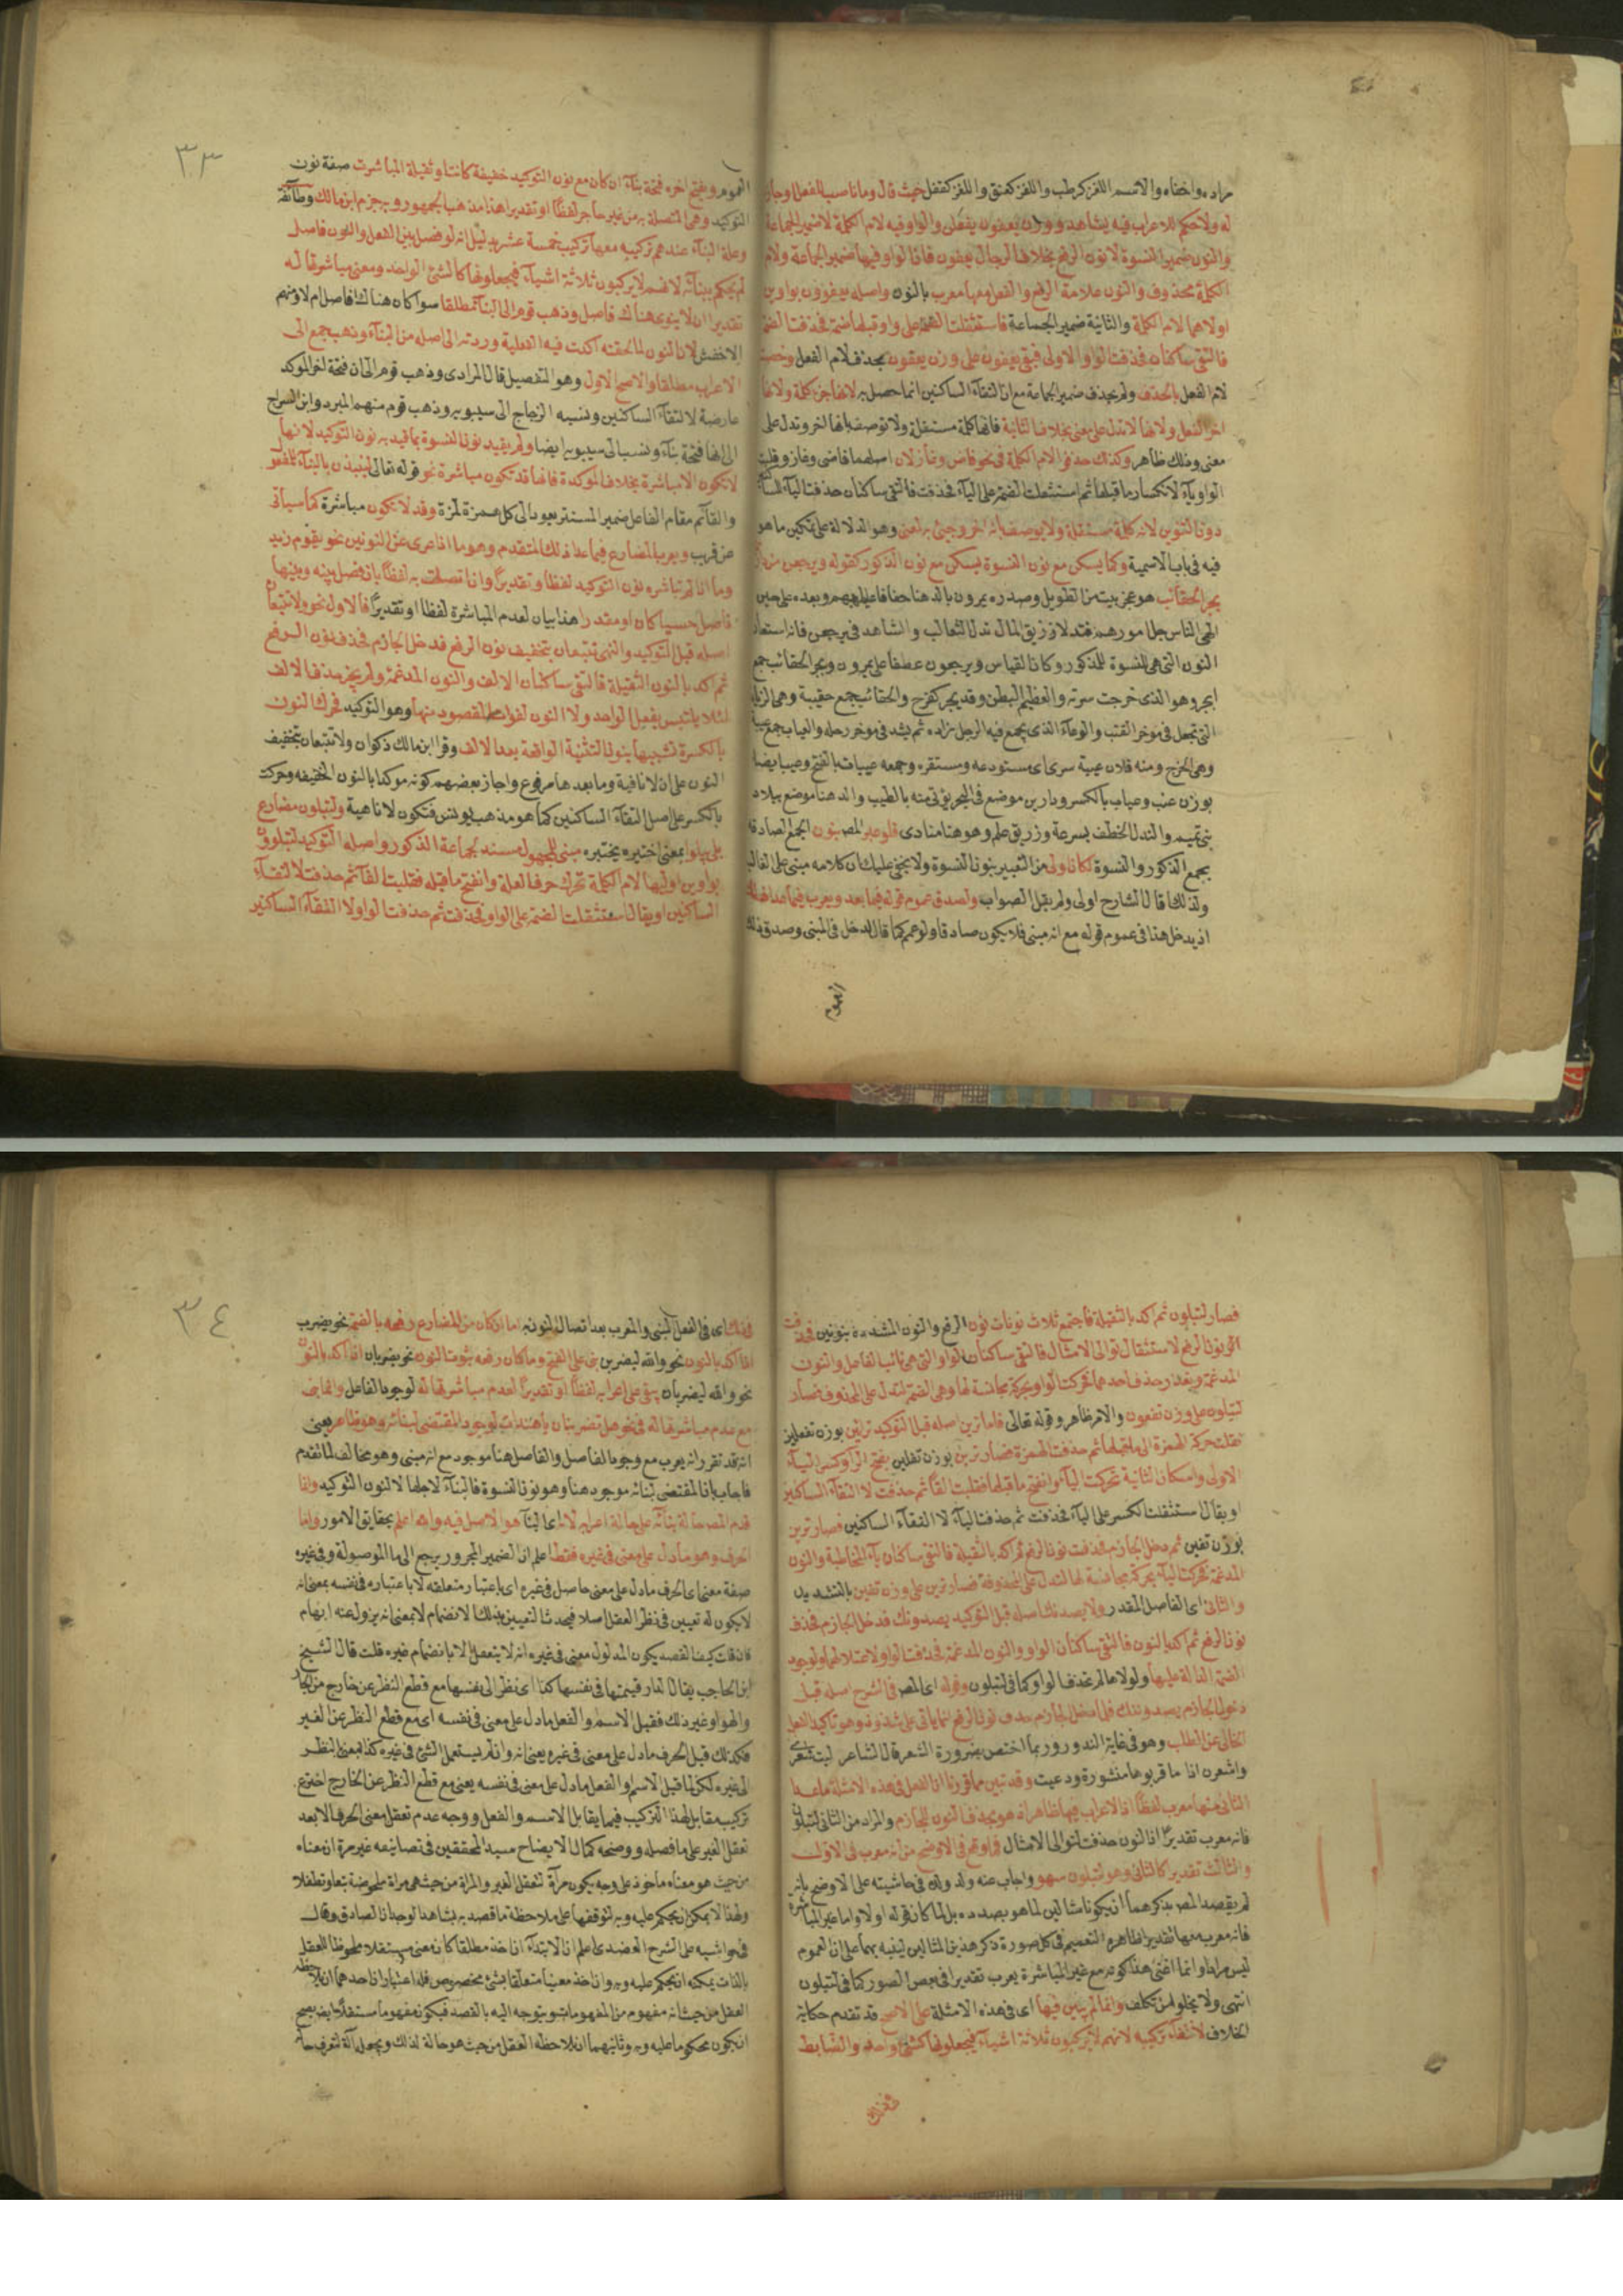 مراده واخفاه والاسم اللغز كرطب واللغز كعنق واللغز كقفل حيث قال وما ناسب الفعل اوجاز
له ولا حكم للاعراب فيه يشاهد ووزان يعفون يفعلن والواو فيه لام الكلمة لا ضمير الجماعة
والنون ضمير النسوة لا نون الرفع بخلاف الرجال يعفون فان الواو فيها ضمير الجماعة ولام
الكلمة محذوف والنون علامة الرفع والفعل معها معرب بالنون واصله يعفوون بواوين
اولاهما لام الكلمة والثانية ضمير الجماعة فاستثقلت الضمة على واو قبلها ضمة فحذفت الضمة
فالتقى ساكنان فحذفت الواو الاولى فبقى يعفون على وزن يعفون بحذف لام الفعل وخصت
لام الفعل بالحذف ولم يحذف ضمير الجماعة مع ان التقاء الساكنين انما حصل به لانها جزء كلمة ولانها
اخر الفعل ولانها لا تدل على معنى بخلاف الثانية فانها كلمة مستقلة ولا توصف بانها اخر وتدل على
معنى وذلك ظاهر وكذلك حذفوا لام الكلمة في نحو قاض وغاز لان اصلهما قاضى وغازو قلبت
الواو ياء لانكسار ما قبلها ثم استثقلت الضمة على الياء فحذفت فالتقى ساكنان حذفت الياء
دون التنوين لانه كلمة مستقلة ولا يوصف بانه اخر وجئ به لمعنى وهو الدلالة على تمكين ما هو
فيه في باب الاسمية وكما يسكن مع نون النسوة يسكن مع نون الذكور كقوله ويرجعن من
بجر الحقائب هو عجز بيت من الطويل وصدره يمرون بالدهنا خفافا عيابهم وبعده على حين
الهى الناس جل امورهم فندلا زريق المال ندل الثعالب والشاهد في يرجعن فانه استعمل
النون التى هى للنسوة للذكور وكان القياس ويرجعون عطفا على يمرون وبجر الحقائب جمع
ابجر وهو الذى خرجت سرته والعظيم البطن وقد بجر كفرح والحقائب جمع حقيبة وهى
التى تجعل في مؤخر القتب والوعاء الذى يجمع فيه الرجل زاده ثم يشد في مؤخر رحله والعياب جمع عيبة
وهى الخرج ومنه فلان عيبة سرى اى مستودعه ومستقره وجمعه عيبات بالفتح وعيب ايضا
بوزن عنب وعياب بالكسر ودارين موضع في البحر يؤتى منه بالطيب والدهنا موضع ببلاد
بنى تميم والندل الخطف بسرعة وزريق علم وهو هنا منادى فلو عبر المص بنون الجمع الصادقة
بجمع الذكور والنسوة لكان اولى من التعبير بنون النسوة ولا يخفى عليك ان كلامه مبنى على الغالب
ولذلك قال الشارح اولى ولم يقل الصواب ولصدق عموم قوله فيما بعد ويعرب فيما عدا ذلك
اذ يدخل هنا في عموم قوله مع انه مبنى فلا يكون صادقا ولو عمم كما قال لدخل في المبنى وصدق ذلك
العموم
٣٣
العموم ويفتح اخره فتحة بناء ان كان مع نون التوكيد خفيفة كانت او ثقيلة المباشرت صفة نون
التوكيد وهى المتصلة به من غير حاجز لفظا او تقديرا هذا مذهب الجمهور وبه جزم ابن مالك وطائفة
وعلة البناء عندهم تركيبه معها تركيب خمسة عشر بدليل انه لو فصل بين الفعل والنون فاصل
لم يحكم ببنائه لانهم لا يركبون ثلاثة اشياء فيجعلونها كالشئ الواحد ومعنى مباشرتها له
تقديرا ان لا ينوى هناك فاصل وذهب قوم الى البناء مطلقا سوا كان هناك فاصل ام لا ومنهم
الاخفش لان النون لما لحقته اكدت فيه الفعلية وردته الى اصله من البناء وذهب جمع الى
الاعراب مطلقا والاصح الاول وهو التفصيل قال المرادى وذهب قوم الى ان فتحة اخر الموكد
عارضة لالتقاء الساكنين ونسبه الزجاج الى سيبويه وذهب قوم منهم المبرد وابن السراج
الى انها فتحة بناء ونسب الى سيبويه ايضا ولم يقيد نون النسوة بما قيد به نون التوكيد لانها
لا تكون الا مباشرة بخلاف الموكدة فانها قد تكون مباشرة نحو قوله تعالى لينبذن بالبناء للمفعول
والقائم مقام الفاعل ضمير المستتر يعود الى كل همزة لمزة وقد لا يكون مباشرة كما سياتى
عن قريب ويعرب المضارع فيما عدا ذلك المتقدم وهو ما اذا عرى عن النونين نحو يقوم زيد
وما اذا لم تباشره نون التوكيد لفظا وتقديرا وان اتصلت به لفظا بان فصل بينه وبينها
فاصل حسيا كان او مقدرا هذا بيان لعدم المباشرة لفظا او تقديرا فالاول نحو ولا تتبعان
اصله قبل التوكيد والنهى تتبعان بتخفيف نون الرفع فدخل الجازم فحذف نون الرفع
ثم اكد بالنون الثقيلة فالتقى ساكنان الالف والنون المدغمة ولم يجز حذف الالف
لئلا يلتبس بفعل الواحد ولا النون لفوات المقصود منها وهو التوكيد فحرك النون
بالكسرة تشبيها بنون التثنية الواقعة بعد الالف وقرا ابن مالك ذكوان ولا تتبعان بتخفيف
النون على ان لا نافية وما بعدها مرفوع واجاز بعضهم كونه موكدا بالنون الخفيفة وحركت
بالكسر على اصل التقاء الساكنين كما هو مذهب يونس فتكون لا ناهية ولتبلون مضارع
بلى يبلوا بمعنى اختبره يختبره مبنى للمجهول مسند لجماعة الذكور واصله قبل التوكيد لتبلوون
بواوين اوليها لام الكلمة تحرك حرف العلة وانفتح ما قبله فقلبت الفا ثم حذفت لالتقاء
الساكنين او يقال استثقلت الضمة على الواو فحذفت ثم حذفت الواو لالتقاء الساكنين
فصار لتبلون ثم اكد بالثقيلة فاجتمع ثلاث نونات نون الرفع والنون المشددة بنونين فحذفت
نون الرفع لاستثقال توالى الامثال فالتقى ساكنان الواو التى هى نائب الفاعل والنون
المدغمة وتعذر حذف احدهما فحركت الواو بحركة مجانسة لها وهى الضمة لتدل على المحذوف فصار
لتبلون على وزن تفعون والامر ظاهر وقوله تعالى فاما ترين اصله قبل التوكيد ترايين بوزن تفعلين
نقلت حركة الهمزة الى ما قبلها ثم حذفت الهمزة فصار تريين بوزن تفلين بفتح الرا وكسر الياء
الاولى واسكان الثانية تحركت الياء وانفتح ما قبلها فقلبت الفا ثم حذفت لالتقاء الساكنين
او يقال استثقلت الكسر على الياء فحذفت ثم حذفت الياء لالتقاء الساكنين فصار ترين
بوزن تفين ثم دخل الجازم فحذفت نون الرفع ثم اكد بالثقيلة فالتقى ساكنان ياء المخاطبة والنون
المدغمة فحركت الياء بحركة مجانسة لها لتدل على المحذوفة فصار ترين على وزن تفين بالتشديد
والثانى اى الفاصل المقدر ولا يصدنك اصله قبل التوكيد يصدونك فدخل الجازم فحذف
نون الرفع ثم اكد بالنون فالتقى ساكنان الواو والنون المدغمة فحذفت الواو لاعتلالها ولوجود
الضمة الدالة عليها ولولاها لم تحذف الواو كما في لتبلون وقوله اى المص في الشرح اصله قبل
دخول الجازم يصدوننك فلما دخل الجازم حذف نون الرفع انما ياتى على شذوذ وهو تاكيد الفعل
الخالى عن الطلب وهو في غاية الندور وربما اختص بضرورة الشعر قال الشاعر ليت شعرى
واشعرن اذا ما قربوها منشورة ودعيت وقد تبين مما قررنا ان الفعل في هذه الامثلة ما عدا
الثانى منها معرب لفظا اذ الاعراب فيها ظاهر اذ هو بحذف النون للجازم والمراد من الثانى لتبلون
فانه معرب تقديرا اذ النون حذفت لتوالى الامثال فما وقع في الاوضح من انه معرب في الاول
والثالث تقديرا كالثانى وهو لتبلون سهو واجاب عنه ولد ولده في حاشيته على الاوضح بانه
لم يقصد المص بذكرهما ان يكونا مثالين لما هو بصدده بل لما كان قوله اولا واما غير المباشرة
فانه معرب معها تقديرا ظاهره التعميم في كل صورة ذكر هذين المثالين لينبه بهما على ان العموم
ليس مرادا وانما اغتنى هذا كونه مع غير المباشرة يعرب تقديرا في بعض الصور كما في لتبلون
انتهى ولا يخلوا من تكلف وانما لم يبن فيها اى في هذه الامثلة على الاصح قد تقدم حكاية
الخلاف لانتفاء تركيبه لانهم لا يركبون ثلاثة اشياء فيجعلونها كشئ واحد والضابط
في ذلك
٣٤
في ذلك اى في الفعل المبنى والمعرب بعد اتصال النون به اما ان كان من المضارع رفعه بالضمة نحو يضرب
اذا اكد بالنون نحو والله ليضربن بنى على الفتح وما كان رفعه بثبوت النون نحو يضربان اذا اكد بالنون
نحو والله ليضربان بقى على اعرابه لفظا او تقديرا لعدم مباشرتها له لوجود الفاعل وانما بنى
مع عدم مباشرتها له في نحو هل تضربنان يا هندات لوجود المقتضى لبنائه وهو ظاهر يعنى
انه قد تقرر انه يعرب مع وجود الفاصل والفاصل هنا موجود مع انه مبنى وهو مخالف لما تقدم
فاجاب بان المقتضى لبنائه موجود هنا وهو نون النسوة فالبناء لاجلها لا لنون التوكيد وانما
قدم المصرحالة بنائه على حالة اعرابه لانه اى البناء هو الاصل فيه والله اعلم بحقايق الامور واما
الحرف وهو ما دل على معنى في غيره فقط اعلم ان الضمير المجرور يرجع الى ما الموصولة وفي غيره
صفة معنى اى الحرف ما دل على معنى حاصل في غيره اى باعتبار متعلقه لا باعتباره في نفسه بمعنى انه
لا يكون له تعيين في نظر العقل اصلا فيحدث التعيين بذلك الانضمام لا بمعنى انه يزول عنه ابهام
فان قلت كيف القصه يكون المدلول معنى في غيره انه لا يتعقل الا بانضمام غيره قلت قال الشيخ
ابن الحاجب يقال الدار قيمتها في نفسها كذا اى نظر الى نفسها مع قطع النظر عن خارج من
والهوا وغير ذلك فقيل الاسم والفعل ما دل على معنى في نفسه اى مع قطع النظر عن الغير
فكذلك قيل الحرف ما دل على معنى في غيره يعنى انه وان لم يستعمل الشئ في غيره كذا بمعنى النظر
الى غيره لكن لما قيل الاسم او الفعل ما دل على معنى في نفسه يعنى مع قطع النظر عن الخارج اخترع
تركيب مقابل لهذا التركيب فيما يقابل الاسم والفعل ووجه عدم تعقل معنى الحرف الا بعد
تعقل الغير على ما فصله ووضحه كمال الايضاح سيد المحققين في تصانيفه غير مرة ان معناه
من حيث هو معناه ماخوذ على وجه يكون مرآة لتعقل الغير والمراة من حيث هى مراة ملحوضة تبعا وتطفلا
ولهذا لا يمكن ان يحكم عليه وبه لتوقفها على ملاحظة ما قصد به يشاهد الوجدان الصادق وقال
في حواشيه على الشرح العضدى اعلم ان الابتداء اذا اخذ مطلقا كان معنى مستقلا ملحوظا للعقل
بالذات يمكنه ان يحكم عليه وبه واذا اخذ معينا متعلقا بشئ مخصوص فله اعتباران احدهما ان يلاحظه
العقل من حيث انه مفهوم من المفهومات ويتوجه اليه بالقصد فيكون مفهوما مستقلا ايضا يصح
ان يكون محكوما عليه وبه وثانيهما ان يلاحظه العقل من حيث هو حالة لذلك ويجعل آلة لتعرف